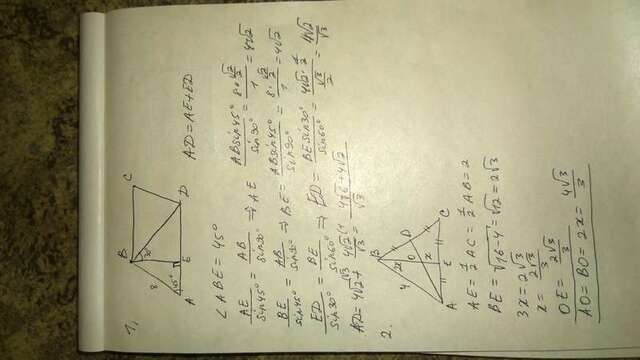 1,
B C
8 30°
45°
A E D
AD = AE+ED
∠ABE = 45°
AE/sin45° = AB/sin90° ⇒ AE = ABsin45°/sin90° = 8·√2/2/1 = 4√2
BE/sin45° = AB/sin90° ⇒ BE = ABsin45°/sin90° = 8·√2/2/1 = 4√2
ED/sin30° = BE/sin60° ⇒ ED = BEsin30°/sin60° = 4√2·1/2/√3/2 = 4√2/√3
= 4√6+4√2/√3
2.
B
4 2x D
O
x
A E C
AE = 1/2 AC = 1/2 AB = 2
BE = √16-4 = √12 = 2√3
3x = 2√3
x = 2√3/3
OE = 2√3/3
AO = BO = 2x = 4√3/3